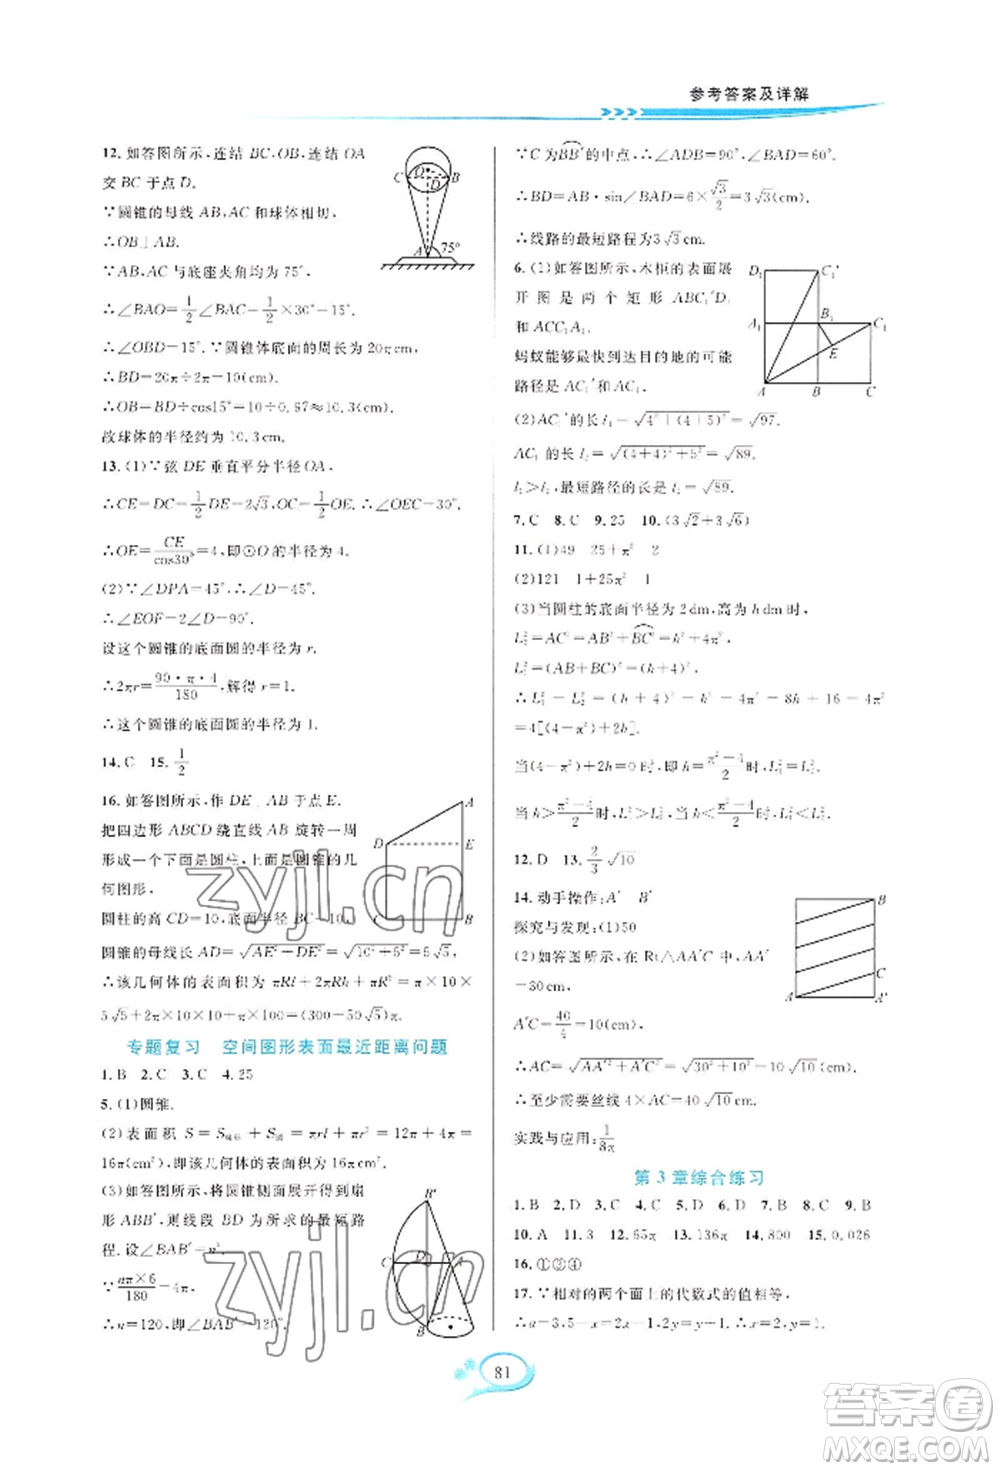 参考答案及详解
12. 如答图所示,连结 BC,OB,连结 OA
交 BC 于点 D.
∵圆锥的母线 AB,AC 和球体相切,
∴OB⊥AB.
∵AB,AC 与底座夹角均为 75°,
∴∠BAO=1/2∠BAC-1/2×30°-15°.
∴∠OBD-15°.∵圆锥体底面的周长为 20π cm,
∴BD=20π÷2π-10(cm).
∴OB=BD÷cos15°=10÷0.97≈10.3(cm).
故球体的半径约为 10.3 cm.
13. (1)∵弦 DE 垂直平分半径 OA,
∴CE=DC=1/2DE=2√3,OC=1/2OE.∴∠OEC-30°.
∴OE=CE/cos30°=4,即⊙O 的半径为 4.
(2)∵∠DPA=45°,∴∠D=45°.
∴∠EOF-2∠D-90°.
设这个圆锥的底面圆的半径为 r.
∴2πr=90·π·4/180,解得 r=1.
∴这个圆锥的底面圆的半径为 1.
14. C 15. 1/2
16. 如答图所示,作 DE⊥AB 于点 E.
把四边形 ABCD 绕直线 AB 旋转一周
形成一个下面是圆柱,上面是圆锥的几
何图形,
圆柱的高 CD=10,底面半径 BC-10,
圆锥的母线长 AD=√AE²+DE²=√10²+5²=5√5
∴该几何体的表面积为 πRl+2πRh+πR²=π×10×
5√5+2π×10×10+π×10²=(300+50√5)π.
专题复习 空间图形表面最近距离问题
1. B 2. C 3. C 4. 25
5. (1)圆锥.
(2)表面积 S=S侧+S底=πrl+πr²=12π+4π=
16π(cm²),即该几何体的表面积为 16π cm².
(3)如答图所示,将圆锥侧面展开,得到扇
形 ABB′,则线段 BD 为所求的最短路
程.设∠BAB′=n°
∵nπ×6/180-4π,
∴n=120,即∠BAB′-120°.
∵C 为BB′的中点,∴∠ADB=90°,∠BAD=60°.
∴BD=AB·sin∠BAD=6×√3/2=3√3(cm).
∴线路的最短路程为3√3 cm.
6. (1)如答图所示,木柜的表面展
开图是两个矩形 ABC₁′D₁
和 ACC₁A₁.
蚂蚁能够最快到达目的地的可能
路径是 AC₁′和 AC₁.
(2)AC₁′的长 l₁-√4²+(4+5)²=√97.
AC₁ 的长 l₂=√(4+4)²+5²=√89.
l₁>l₂,最短路径的长是 l₂=√89.
7. C 8. C 9. 25 10. (3√2+3√6)
11. (1)49 25+π² 2
(2)121 1+25π² 1
(3)当圆柱的底面半径为 2 dm,高为 h dm 时,
L₁²=AC²=AB²+BC²=h²+4π²,
L₂²=(AB+BC)²=(h+4)².
∴L₂²-L₁²=(h+4)²-h²-4π²-8h+16-4π²
=4[(4-π²)+2h].
当(4-π²)+2h=0 时,即 h=π²-4/2时,L₁²-L₂²;
当 h>π²-4/2时,L₁²<L₂²;当 h<π²-4/2时,L₁²>L₂².
12. D 13. 2/3√10
14. 动手操作:A′ B′
探究与发现:(1)50
(2)如答图所示,在 Rt△AA′C 中,AA′
-30 cm,
A′C=40/4=10(cm),
∴AC=√AA′²+A′C²=√30²+10²=10√10(cm).
∴至少需要丝线 4×10√10=40√10(cm).
实践与应用:1/8π
第 3 章综合练习
1. B 2. D 3. B 4. C 5. D 6. D 7. C 8. B 9. B
10. A 11. 3 12. 65π 13. 136π 14. 800 15. 0.026
16. ①②④
17. ∵相对的两个面上的代数式的值相等,
81
zyjl.cn
zyjl.cn
答案圈
MXQE.COM